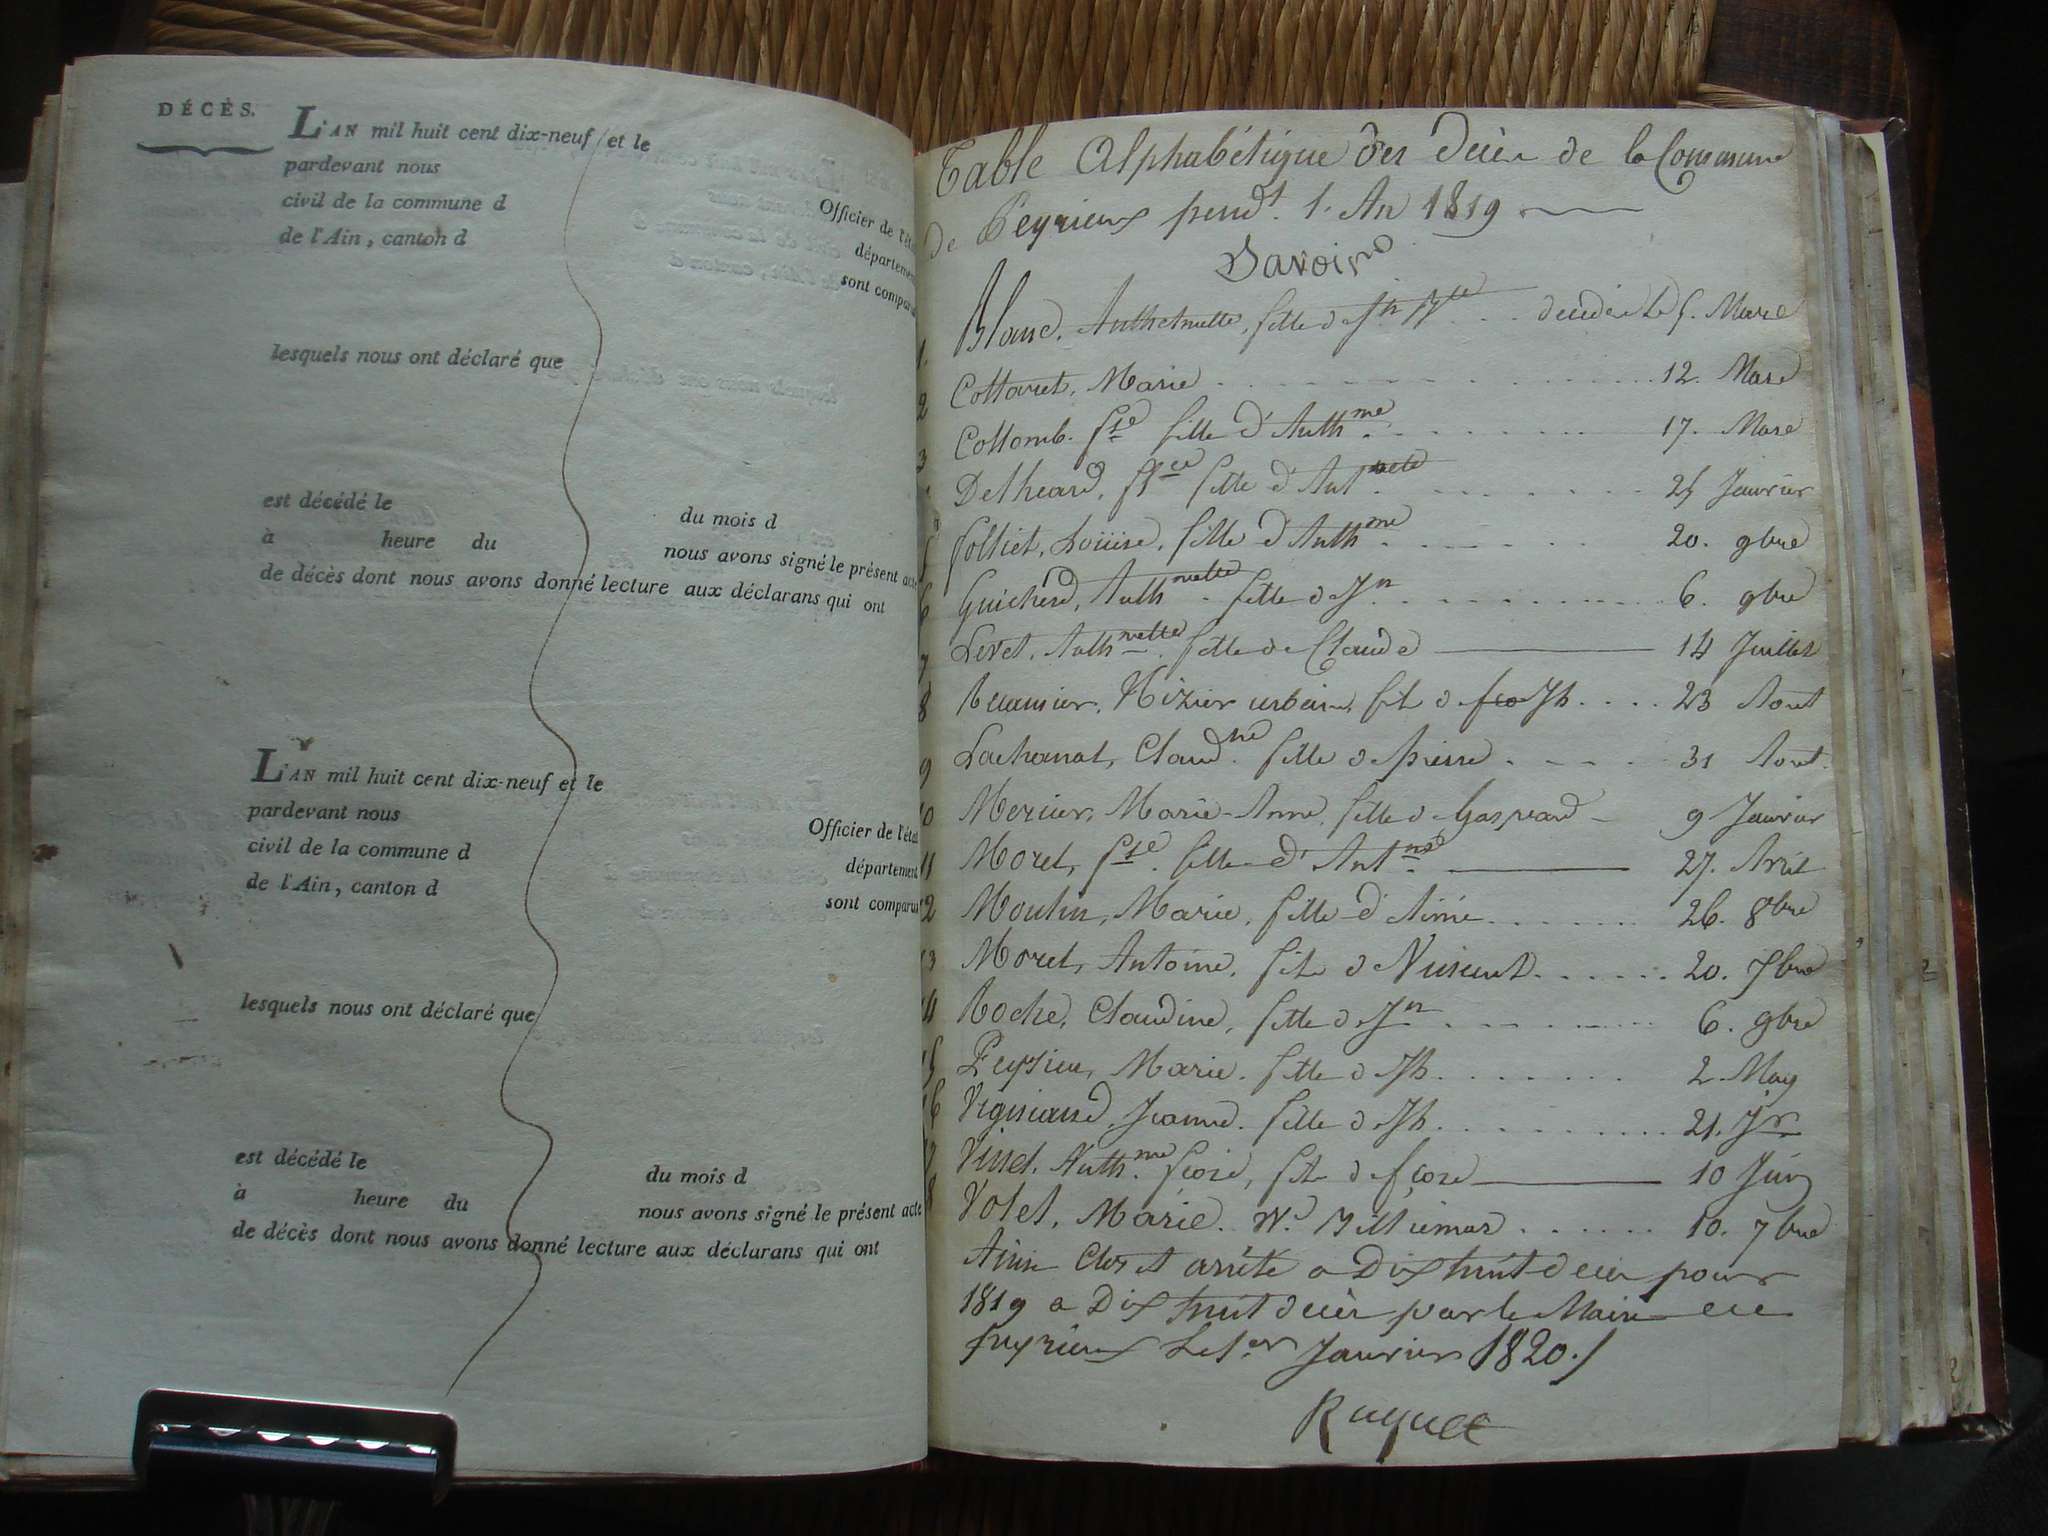 DÉCÈS.
L'AN mil huit cent dix-neuf et le
pardevant nous
Officier de l'éta
civil de la commune d
départemen
de l'Ain, canton d
sont compar
lesquels nous ont déclaré que
est décédé le
du mois d
à heure du
nous avons signé le présent acte
de décès dont nous avons donné lecture aux déclarans qui ont
L'AN mil huit cent dix-neuf et le
pardevant nous
Officier de l'éta
civil de la commune d
département
de l'Ain, canton d
sont comparus
lesquels nous ont déclaré que
est décédé le
du mois d
à heure du
nous avons signé le présent acte
de décès dont nous avons donné lecture aux déclarans qui ont
Table Alphabétique des décès de la Commune
de Peyrieux pend.t l. An 1819
Savoir
1. Blanc, Anthelmette, fille de Jn décédée Le 5. Mars
2 Cottaret, Marie 12. Mars
3 Collomb. fse fille d'Anthme 17. Mars
Delheard, fse fille d'Antnette 25 Janvier
5 Folliet, Louise, fille d'Anthme 20. 9bre
6 Guicherd, Anthmette fille de Jn 6. 9bre
7 Levet, Anthmette fille de Claude 14 Juillet
8 Recamier, Nizier urbain, fils de fco Jh 23 Aout
9 Lachanat, Claudne fille de pierre 31 Aout.
10 Mercier, Marie-Anne, fille de Gaspard 9 Janvier
11 Moret, fse. fille d'Antne 27. Avril
12 Moulin, Marie, fille d'Aimé 26. 8bre
13 Moret, Antoine, fils de Vincent 20. 7bre
14 Roche, Claudine, fille de Jn 6. 9bre
15 Peysieu, Marie. fille de Jh 2 May
16 Vigniand, Jeanne. fille de Jh 21. Jr
17 Vinet, Anthme fcois, fils de fcois 10 Juin
18 Volet, Marie. Ve. 10. 7bre
Ainsi Clos et arrêté a Dix huit décès pour
1819 a Dix huit décès par le Maire de
peyrieux Le 1.er Janvier 1820./